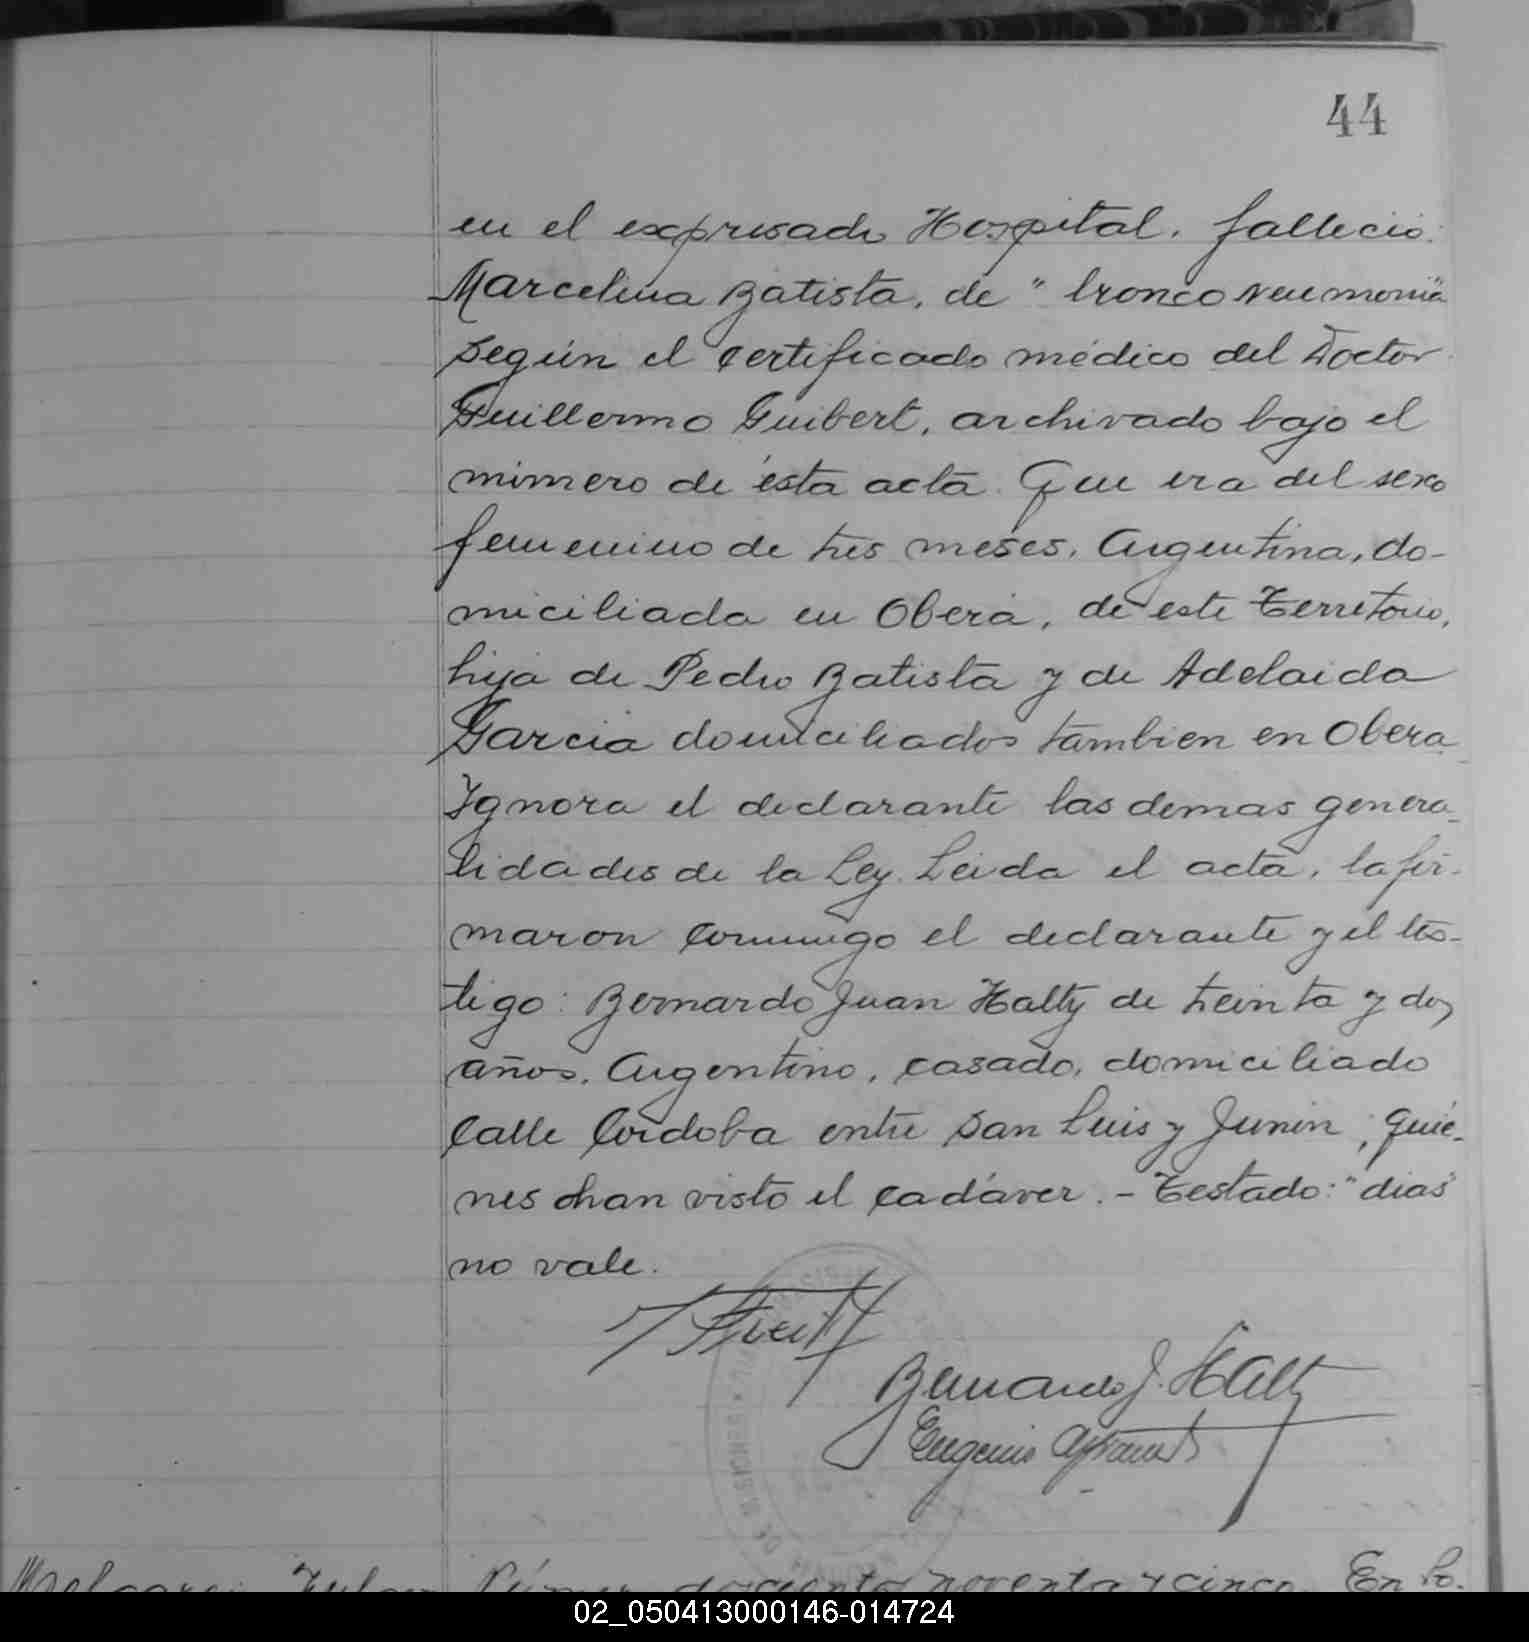 44
en el expresado Hospital. falleció:
Marcelina Batista, de "bronco neumonia"
según el certificado médico del Doctor
Guillermo Guibert, archivado bajo el
número de ésta acta. Que era del sexo
femenino de tres meses, Argentina, do-
miciliada en Oberá, de este Territorio,
hija de Pedro Batista y de Adelaida
Garcia domiciliados tambien en Obera
Ignora el declarante las demas genera-
lidades de la Ley. Leida el acta, la fir-
maron conmigo el declarante y el tes-
tigo: Bernardo Juan Halty de treinta y dos
años, Argentino, casado, domiciliado
calle Córdoba entre San Luis y Junin, quié-
nes han visto el cadáver. - Testado: "dias"
no vale.
Bernardo J. Halty
Eugenio
Número doscientos noventa y cinco. En Po.
02_050413000146-014724